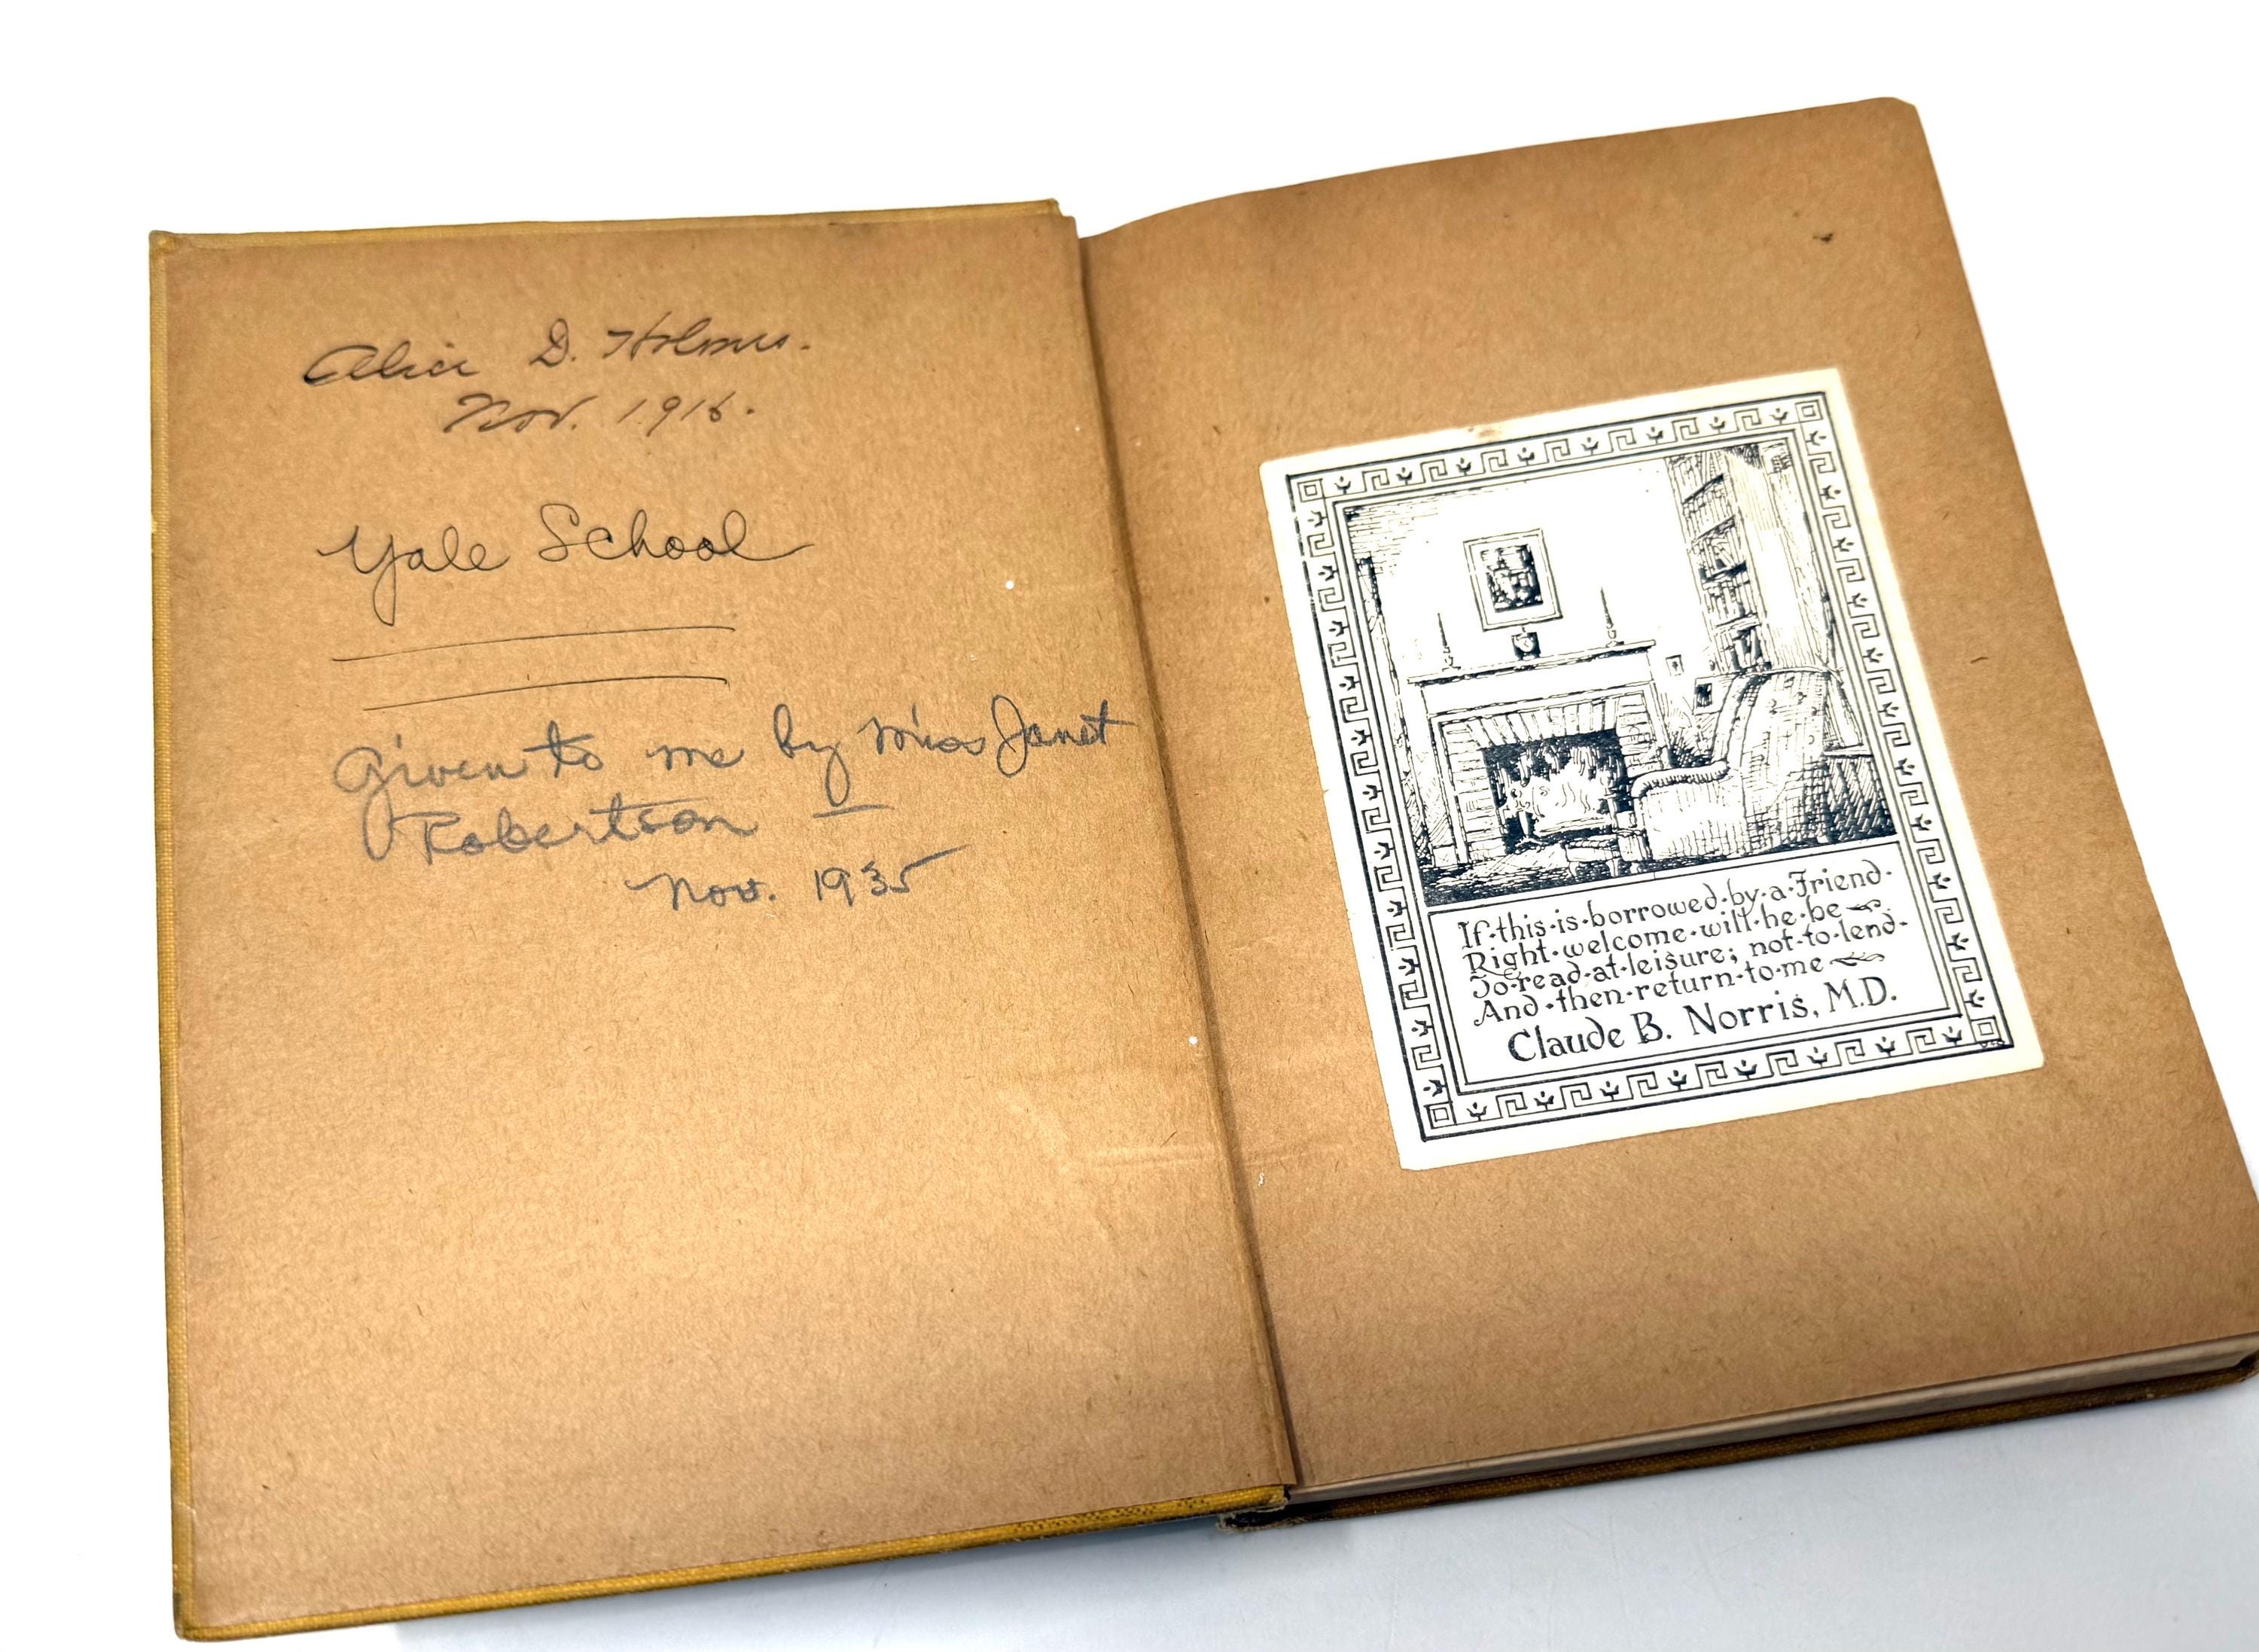 Alice D. Holmes.
Nov. 1916.
Yale School
Given to me by Miss Janet
Robertson —
Nov. 1935
If·this·is·borrowed·by·a·Friend·
Right·welcome·will·he·be
To·read·at·leisure; not·to·lend·
And·then·return·to·me
Claude B. Norris, M.D.